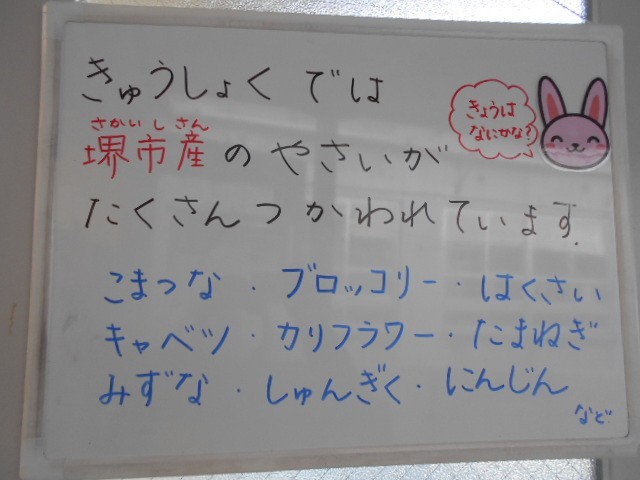 きゅうしょくでは
きょうは
なにかな?
さかいしさん
堺市産のやさいが
たくさんつかわれています.
こまつな・ブロッコリー・はくさい
キャベツ・カリフラワー・たまねぎ
みずな・しゅんぎく・にんじん
など.